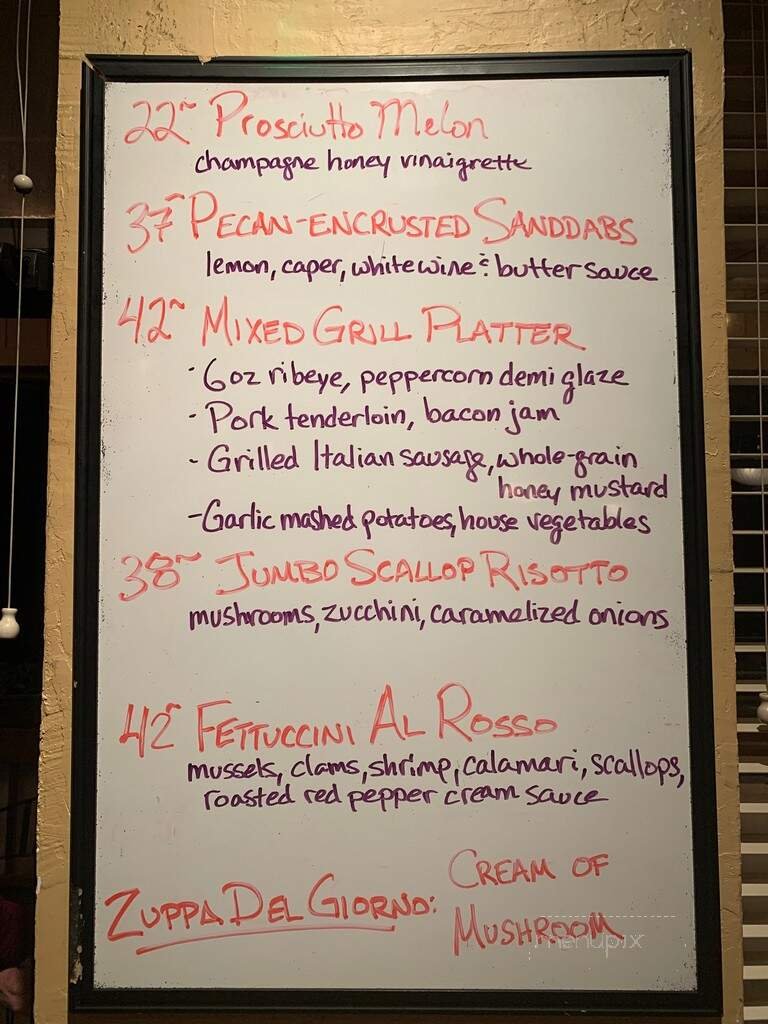 22~ Prosciutto Melon
champagne honey vinaigrette
37~ PECAN-ENCRUSTED SANDDABS
lemon, caper, white wine & butter sauce
42~ MIXED GRILL PLATTER
- 6oz ribeye, peppercorn demi glaze
- Pork tenderloin, bacon jam
- Grilled Italian sausage, whole-grain
honey mustard
- Garlic mashed potatoes, house vegetables
38~ JUMBO SCALLOP RISOTTO
mushrooms, zucchini, caramelized onions
42~ FETTUCCINI AL ROSSO
mussels, clams, shrimp, calamari, scallops,
roasted red pepper cream sauce
ZUPPA DEL GIORNO: CREAM OF
MUSHROOM
menupix